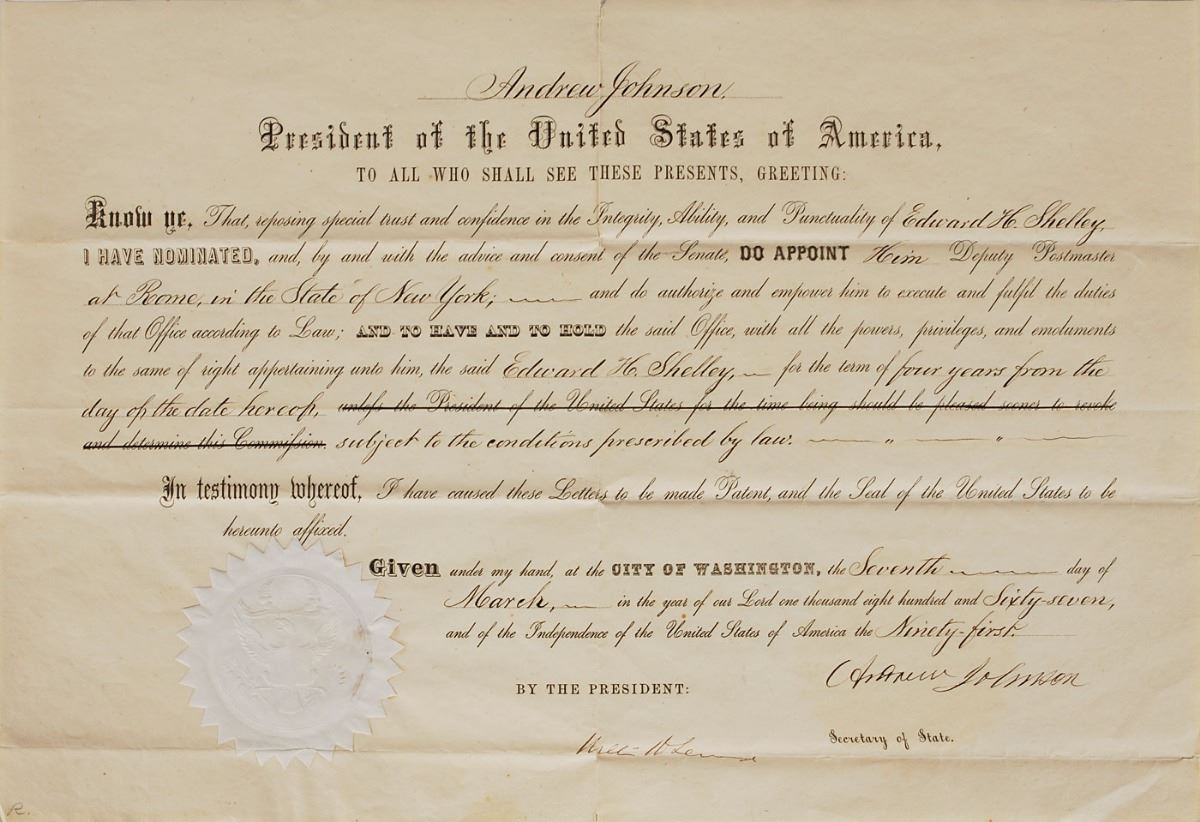 Andrew Johnson.
President of the United States of America,
TO ALL WHO SHALL SEE THESE PRESENTS, GREETING:
Know ye, That, reposing special trust and confidence in the Integrity, Ability, and Punctuality of Edward H. Shelley,
I HAVE NOMINATED, and, by and with the advice and consent of the Senate, DO APPOINT Him Deputy Postmaster
at Rome, in the State of New York; and do authorize and empower him to execute and fulfil the duties
of that Office according to Law; AND TO HAVE AND TO HOLD the said Office, with all the powers, privileges, and emoluments
to the same of right appertaining unto him, the said Edward H. Shelley, for the term of four years from the
day of the date hereof, unless the President of the United States for the time being should be pleased sooner to revoke
and determine this Commission. subject to the conditions prescribed by law. " "
In testimony whereof, I have caused these Letters to be made Patent, and the Seal of the United States to be
hereunto affixed.
Given under my hand, at the CITY OF WASHINGTON, the Seventh day of
March, in the year of our Lord one thousand eight hundred and Sixty-seven,
and of the Independence of the United States of America the Ninety-first.
Andrew Johnson
BY THE PRESIDENT:
Secretary of State.
R.